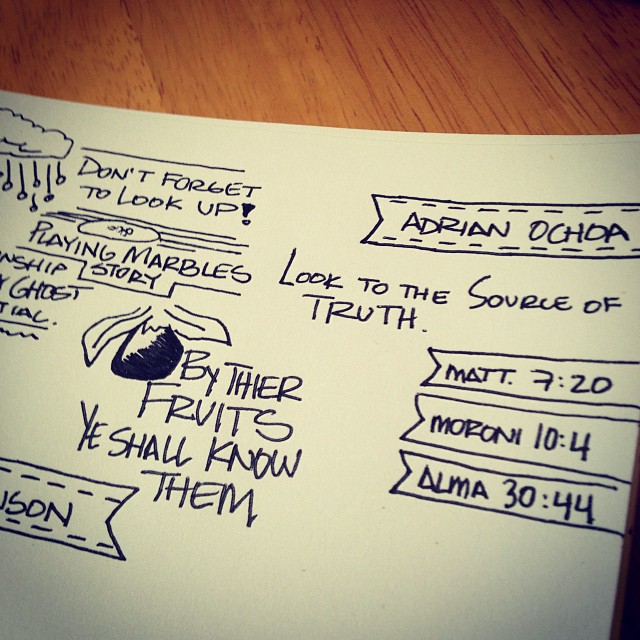 DON'T FORGET
TO LOOK UP!
PLAYING MARBLES
STORY
GHOST
BY THIER
FRUITS
YE SHALL KNOW
THEM
ADRIAN OCHOA
LOOK TO THE SOURCE OF
TRUTH.
MATT. 7:20
MORONI 10:4
ALMA 30:44